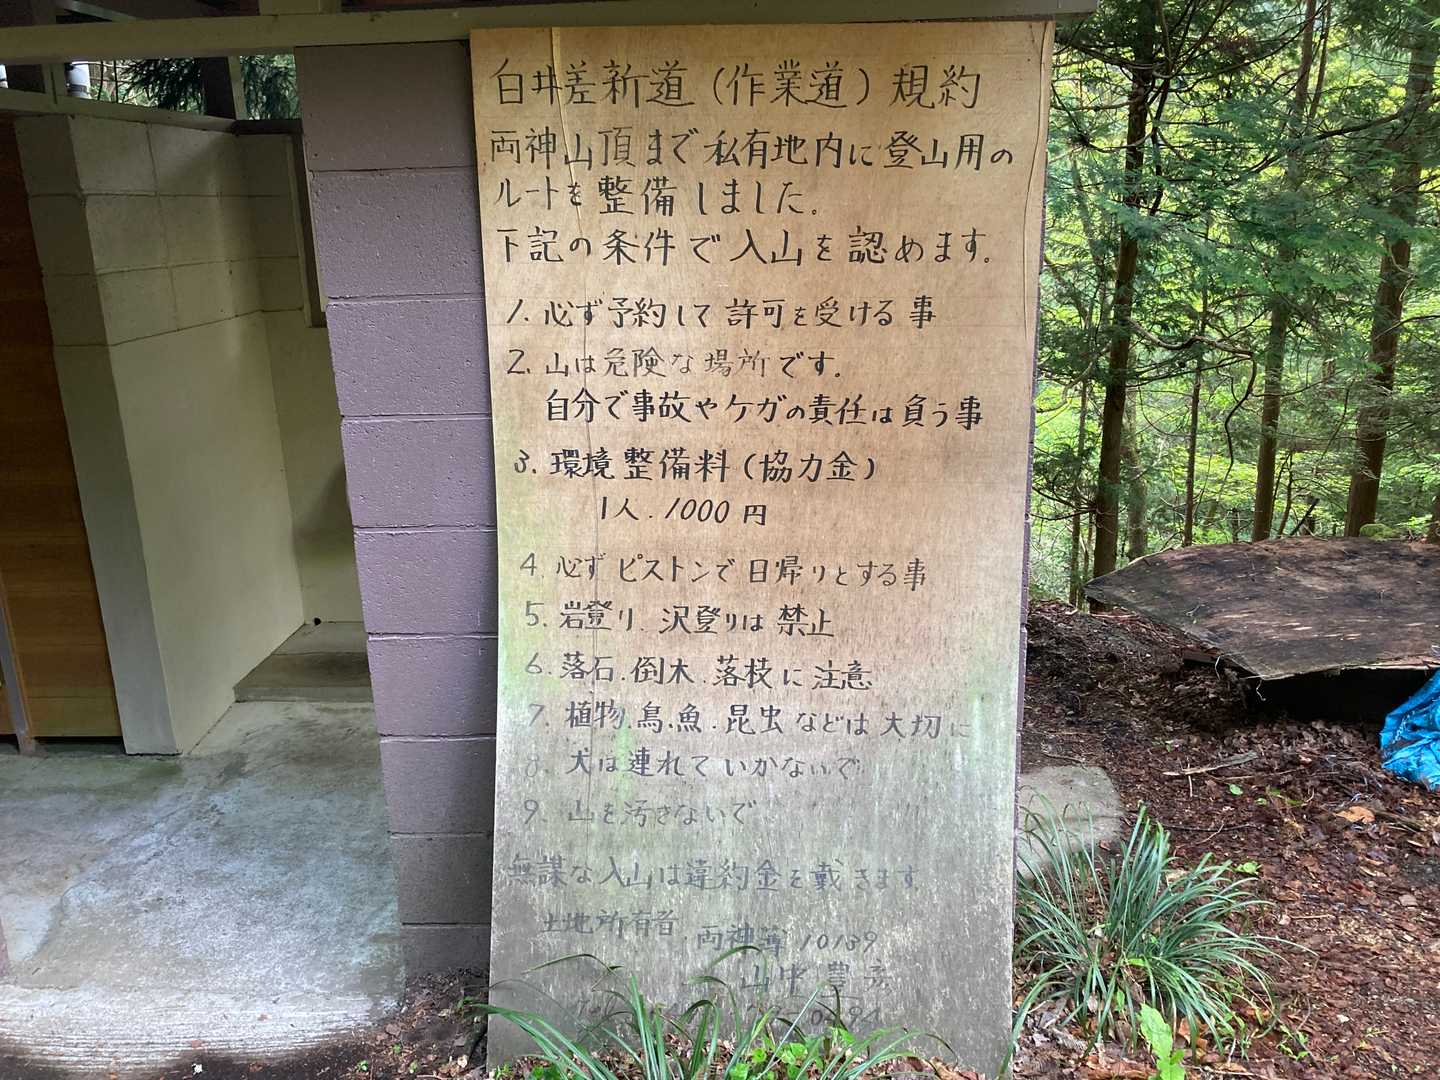 白井差新道(作業道)規約
両神山頂まで私有地内に登山用の
ルートを整備しました。
下記の条件で入山を認めます。
1. 必ず予約して許可を受ける事
2. 山は危険な場所です。
自分で事故やケガの責任は負う事
3. 環境整備料(協力金)
1人. 1000円
4. 必ずピストンで日帰りとする事
5. 岩登り. 沢登りは禁止
6. 落石. 倒木. 落枝に注意
7. 植物. 鳥. 魚. 昆虫などは大切に
8. 犬は連れていかないで
9. 山を汚さないで
無謀な入山は違約金を戴きます.
土地所有者. 両神薄10139
山中豊彦